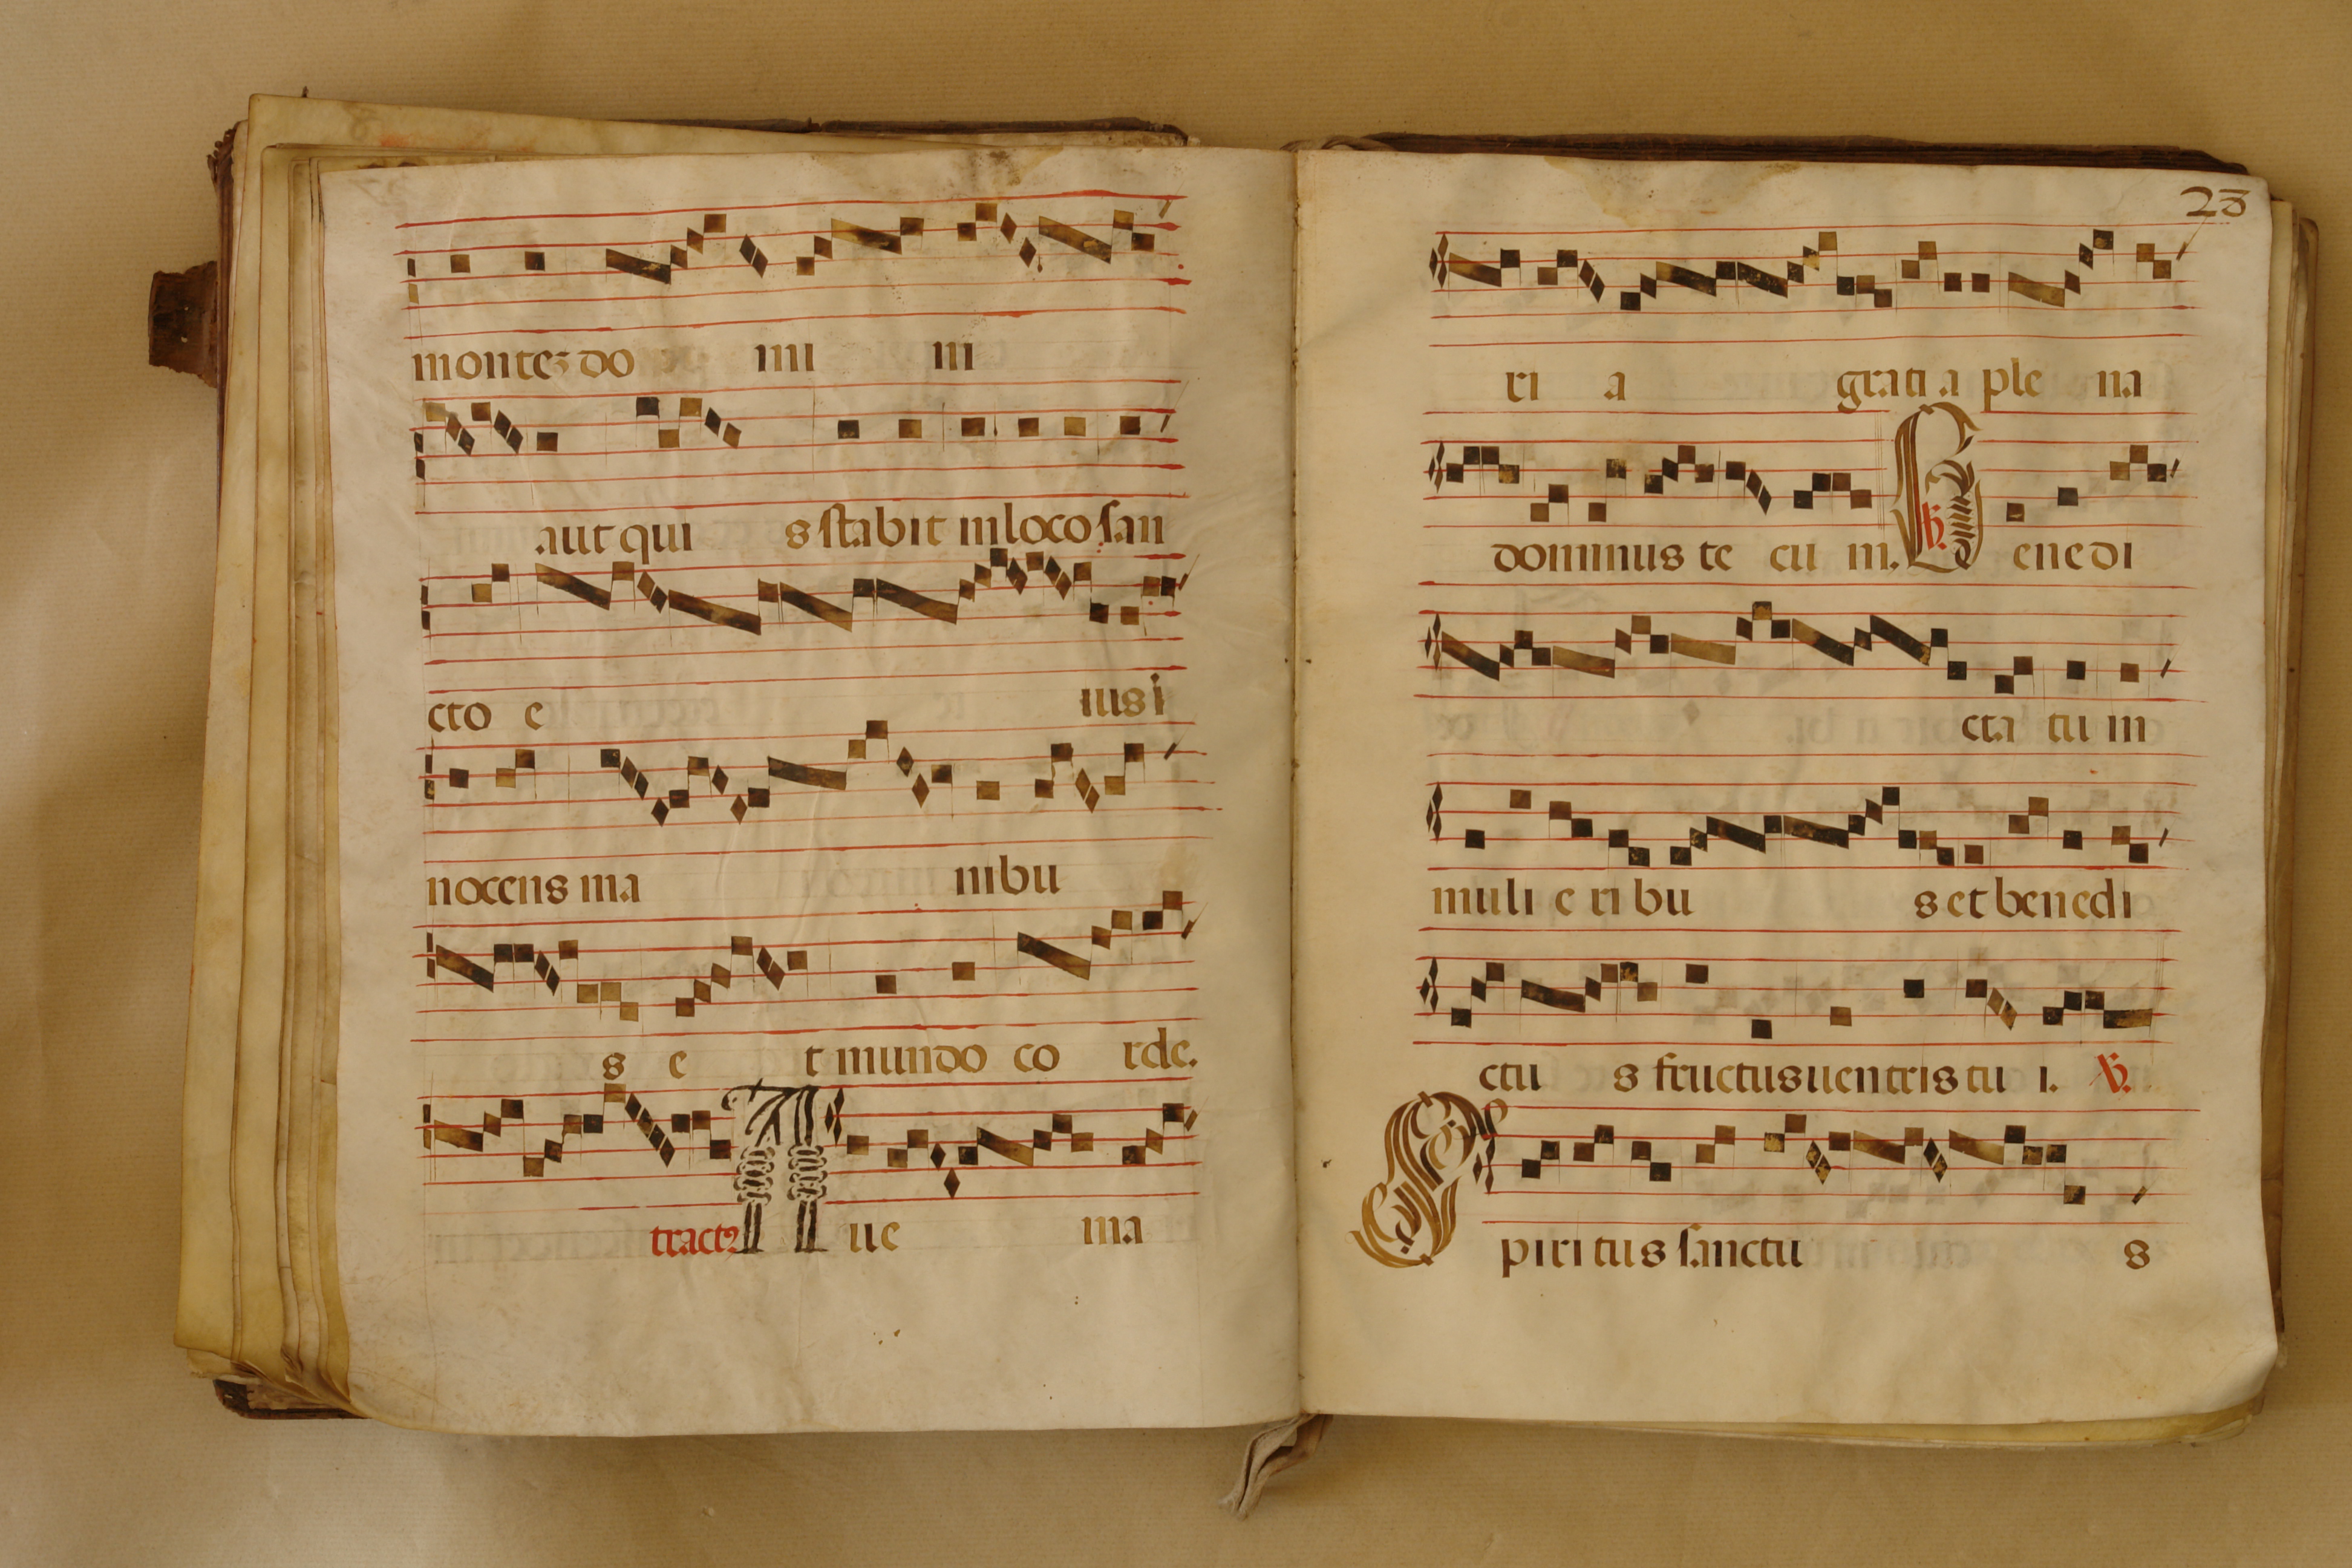 montez do mi ni
aut qui s stabit in loco san
cto e ius i
nocens ma nibu
s e t mundo co rde.
tract9 A ue ma
23
ri a grati a ple na
dominus te cu m. ℣. B ene di
cta tu in
muli e ri bu s et benedi
ctu s fructus uentris tu i. ℣.
S piri tus sanctu s